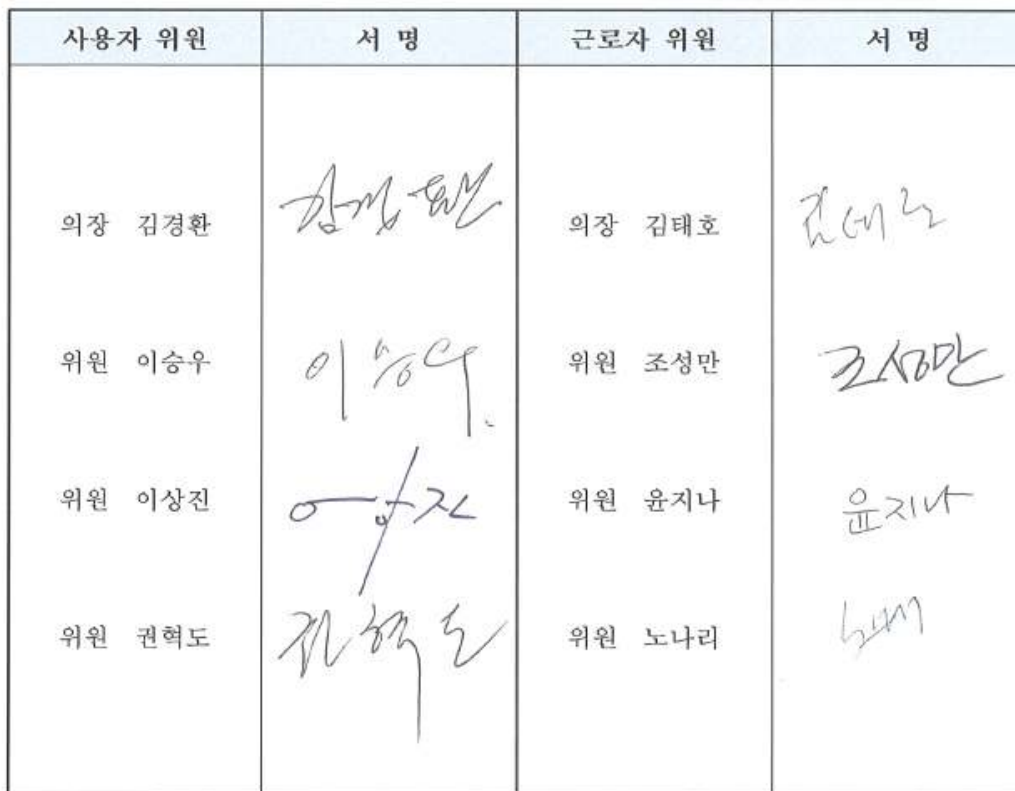 사용자 위원 서 명 근로자 위원 서 명
의장 김경환 김경환 의장 김태호 김태호
위원 이승우 이승우 위원 조성만 조성만
위원 이상진 위원 윤지나 윤지나
위원 권혁도 권혁도 위원 노나리